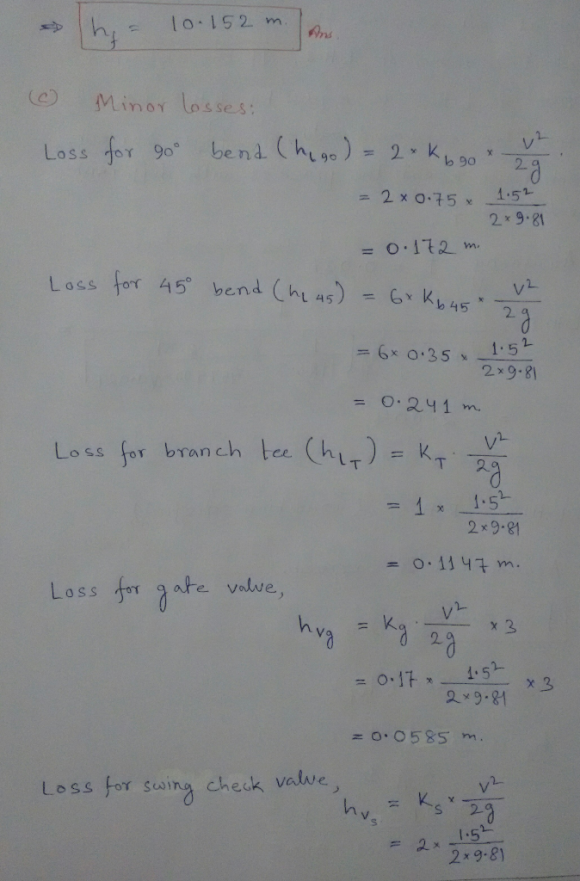 ⇒ h_f = 10.152 m. Ans.
(c) Minor losses:
Loss for 90° bend (h_L90) = 2 × K_b90 × V²/2g.
= 2 × 0.75 × 1.5²/2×9.81
= 0.172 m.
Loss for 45° bend (h_L45) = 6 × K_b45 × V²/2g
= 6 × 0.35 × 1.5²/2×9.81
= 0.241 m.
Loss for branch tee (h_LT) = K_T · V²/2g
= 1 × 1.5²/2×9.81
= 0.1147 m.
Loss for gate valve,
h_vg = K_g · V²/2g × 3
= 0.17 × 1.5²/2×9.81 × 3
= 0.0585 m.
Loss for swing check valve,
h_vs = K_s × V²/2g
= 2 × 1.5²/2×9.81